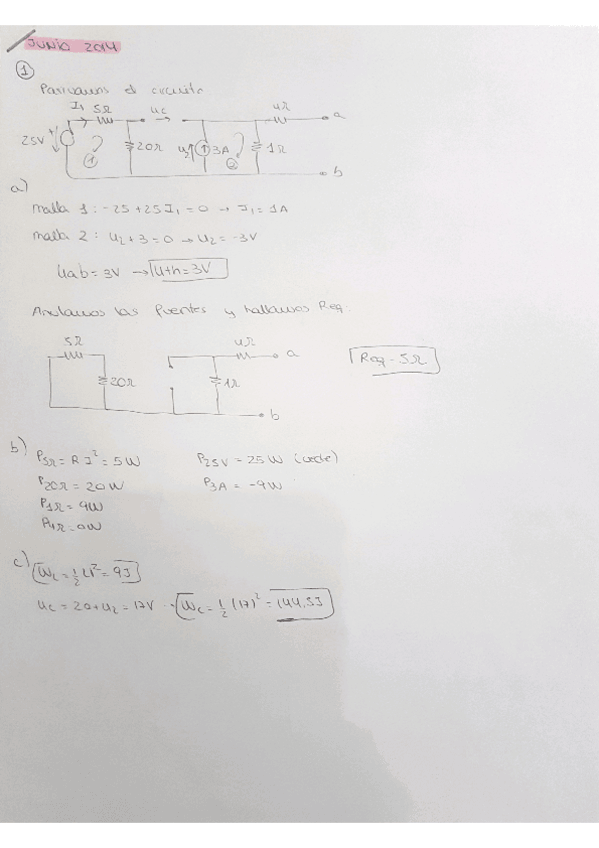 JUNIO 2014
1
Pasivamos el circuito
I1 5Ω uc 4Ω a
25V 1 20Ω u2 3A 2 1Ω
b
a)
malla 1: -25+25I1=0 → I1=1A
malla 2: u2+3=0 → u2=-3V
Uab=3V → Uth=3V
Anulamos las fuentes y hallamos Req.
5Ω 4Ω a
20Ω 1Ω Req = 5Ω
b
b) P5Ω = R I² = 5W P25V = 25W (cede)
P20Ω = 20W P3A = -9W
P1Ω = 9W
P4Ω = 0W
c) WL = 1/2 LI² = 9J
uc = 20+u2 = 17V → Wc = 1/2 (17)² = 144,5J